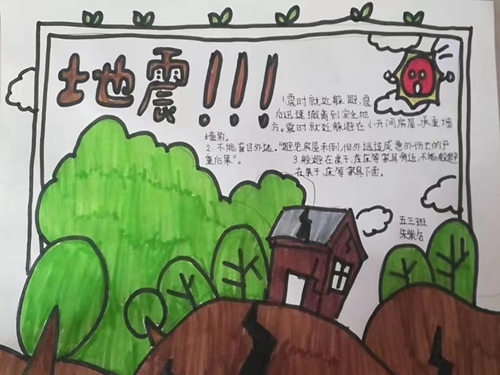 地震!!!
1震时就近躲避,震
后迅速撤离到安全地
方。震时就近躲避在小开间房屋、承重墙
墙角。
2.不能盲目外逃。"避免房屋未倒,但外逃造成意外伤亡的严
重后果"。
3.躲避在桌子、床等家具侧近,不能躲避
在桌子、床等家具下面。
五三班
朱